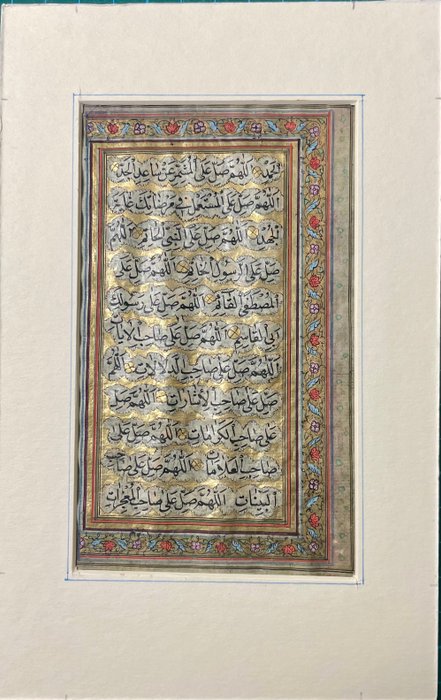 اللهم صل على المشمر عن ساعد الجد
اللهم صل على المستعمل في مرضاتك غاية
الجهد اللهم صل على النبي الخاتم اللهم
صل على الرسول الخاتم اللهم صل على
المصطفى القائم اللهم صل على رسولك
ابي القاسم اللهم صل على صاحب الايات
اللهم صل على صاحب الدلالات اللهم
صل على صاحب الاشارات اللهم صل
على صاحب الكرامات اللهم صل على
صاحب العلامات اللهم صل على صاحب
البينات اللهم صل على صاحب المعجزات